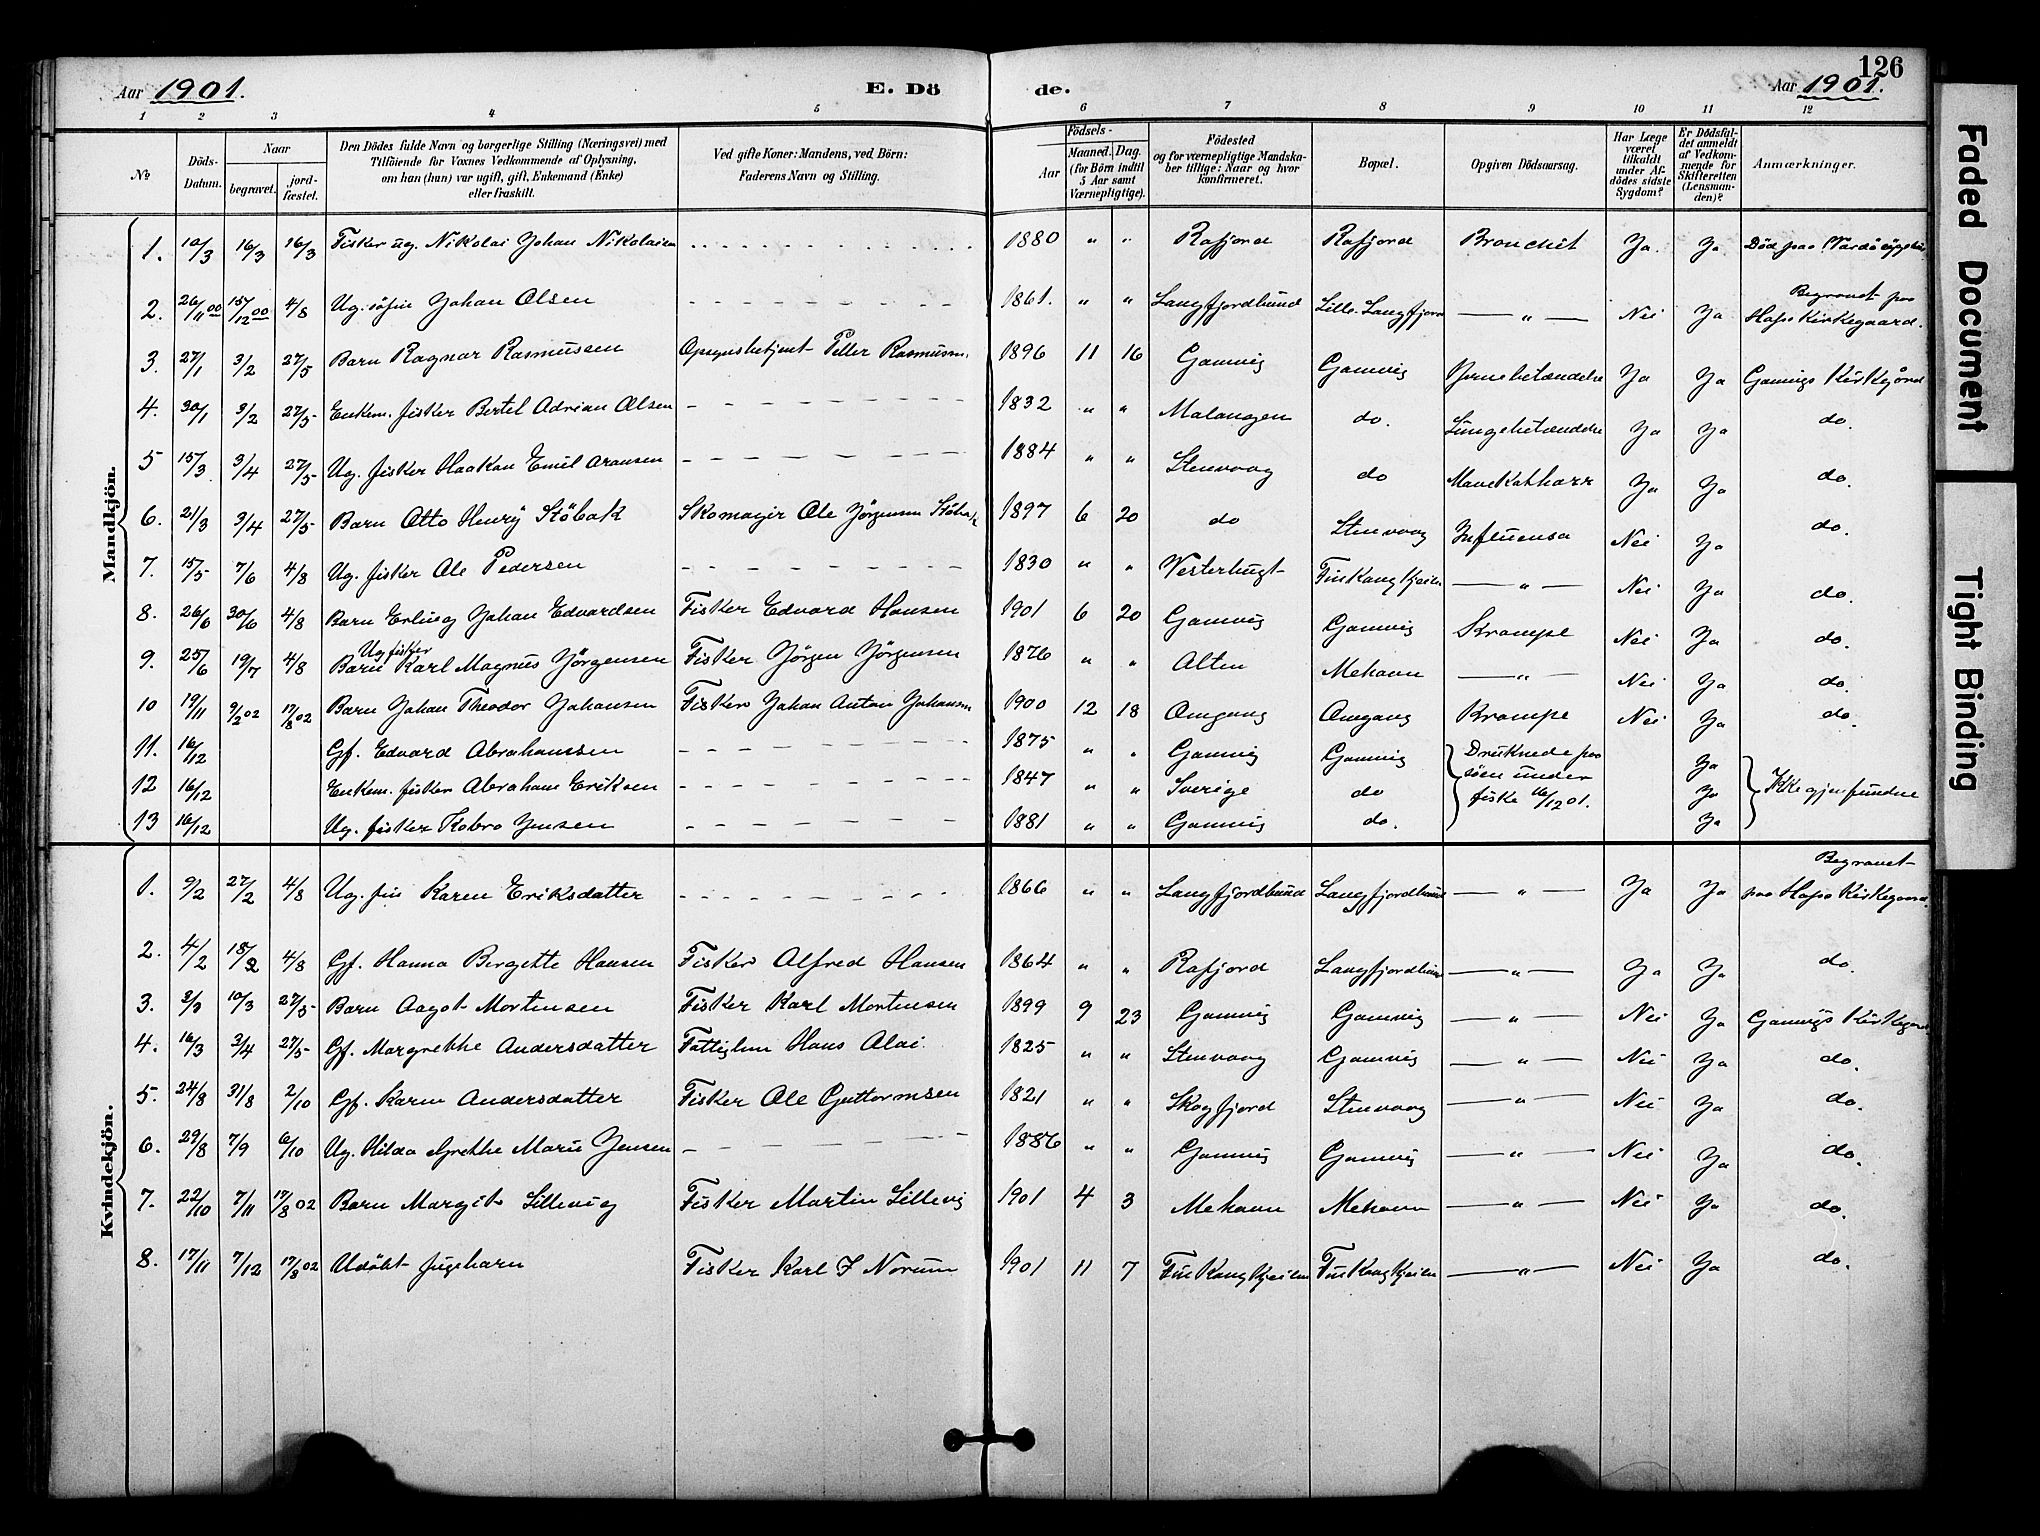 126
Aar 1901. E. Dö de. Aar 1901.
1 2 3 4 5 6 7 8 9 10 11 12
No
Döds-Datum.
Naar
begravet. jordfæstet.
Den Dödes fulde Navn og borgerlige Stilling (Næringsvei) med
Tilföiende for Voxnes Vedkommende af Oplysning,
om han (hun) var ugift, gift, Enkemand (Enke)
eller fraskilt.
Ved gifte Koner: Mandens, ved Börn:
Faderens Navn og Stilling.
Födsels-
Aar Maaned. Dag.
(for Börn indtil
5 Aar samt
Værnepligtige).
Födested
og for værnepligtige Mandskaber tillige: Naar og hvor
konfirmeret.
Bopæl.
Opgiven Dödsaarsag.
Har Læge
været
tilkaldt
under Afdödes sidste
Sygdom?
Er Dödsfaldet anmeldt
af Vedkommende for
Skifteretten
(Lensmanden)?
Anmærkninger.
Mandkjön.
1. 10/3 16/3 16/3 Fisker ug. Nikolai Johan Nikolaisen 1880 " " Rafjord Rafjord Bronchit Ja. Ja Död paa Vardö
2. 26/11 00 15/12 00 4/8 Ug. söfin Johan Olsen 1861. " " Langfjordbund Lille-Langfjord — " — Nei Ja Begravet paa Hops Kirkegaard.
3. 27/1 3/2 27/5 Barn Ragnar Rasmussen Opsynsbetjent Petter Rasmussen 1896 11 16 Gamvig Gamvig Ja Ja Gamvigs Kirkegård
4. 30/1 3/2 27/5 Enkem. fisker Bertel Adrian Olsen 1832 " " Malangen do. Lungebetændelse Ja Ja do.
5 15/3 3/4 27/5 Ug. fisker Haakon Emil Aronsen 1884 " " Stenvaag do Mavekatharr Ja Ja do.
6. 21/3 3/4 27/5 Barn Otto Henry Stöbak Skomager Ole Jörgensen Stöbak 1897 6 20 do Stenvaag Influensa Nei Ja do.
7. 15/5 7/6 4/8 Ug. fisker Ole Pedersen 1830 " " Vesterbugt Finkongkjeilen — " — Nei Ja do.
8. 26/6 30/6 4/8 Barn Erling Johan Edvardsen Fisker Edvard Hansen 1901 6 20 Gamvig Gamvig Krampe Nei Ja do.
Ug fisker
9. 25/6 19/7 4/8 Barn Karl Magnus Jörgensen Fisker Jörgen Jörgensen 1876 " " Alten Mehavn — " — Nei Ja do.
10 19/11 9/2 02 17/8 02 Barn Johan Theodor Johansen Fisker Johan Anton Johansen 1900 12 18 Omgang Omgang Krampe Nei Ja do.
11. 16/12 Gf. Edvard Abrahamsen 1875 " " Gamvig Gamvig Druknede paa Ja
12 16/12 Enkem. fisker Abraham Eriksen 1847 " " Sverige do söen under Ja Ikke gjenfundne
13 16/12 Ug. fisker Kobro Jensen 1881 " " Gamvig do. fiske 16/12 01. Ja
Kvindekjön.
1. 9/2 27/2 4/8 Ug. fin Karen Eriksdatter 1866 " " Langfjordbund Langfjordbund — " — Ja Ja Begravet paa Hops Kirkegaard.
2. 4/2 18/2 4/8 Gf. Hanna Bergette Hansen Fisker Alfred Hansen 1864 " " Rafjord Langfjordbund — " — Ja Ja do.
3. 3/3 10/3 27/5 Barn Aagot Mortensen Fisker Karl Mortensen 1899 9 23 Gamvig Gamvig — " — Nei Ja Gamvigs Kirkegaard
4. 16/3 3/4 27/5 Gf. Margrethe Andersdatter Fattiglem Hans Olai 1825 " " Stenvaag Gamvig — " — Nei Ja do.
5. 24/8 31/8 2/10 Gf. Karen Andersdatter Fisker Ole Guttormsen 1821 " " Skogfjord Stenvaag — " — Nei Ja do.
6. 29/8 7/9 6/10 Ug. Hilda Grethe Marie Jensen 1886 " " Gamvig Gamvig — " — Nei Ja do.
7. 22/10 7/11 17/8 02 Barn Margit Lillevig Fisker Martin Lillevig 1901 4 3 Mehavn Mehavn — " — Nei Ja do.
8. 17/11 7/12 17/8 02 Udöbt pigebarn Fisker Karl J Norum 1901 11 7 Finkongkjeilen Finkongkjeilen — " — Nei Ja do.
Faded Document
Tight Binding